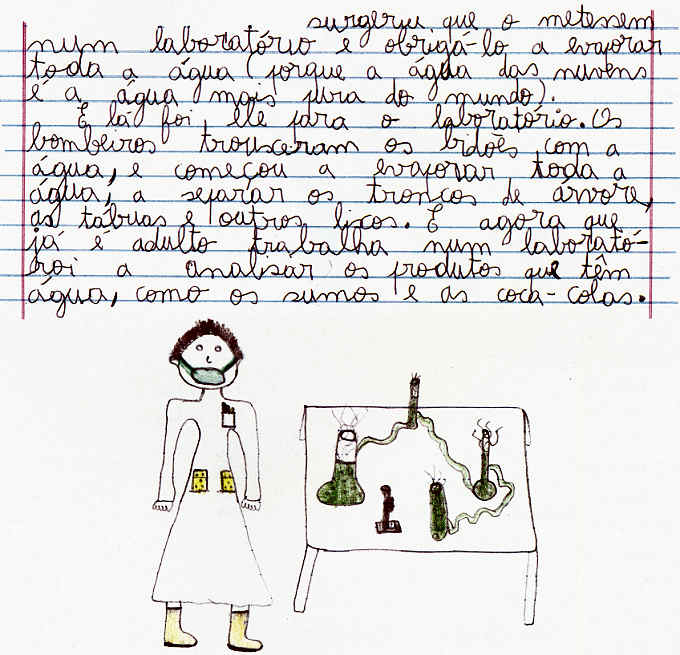 surgeriu que o metessem
num laboratório e obrigá-lo a evaporar
toda a água (porque a água das nuvens
é a água mais pura do mundo).
E lá foi ele para o laboratório. Os
bombeiros trouxeram os bidões com a
água, e começou a evaporar toda a
água, a separar os troncos de árvore,
as tábuas e outros lixos. E agora que
já é adulto trabalha num laborató-
roi a analisar os produtos que têm
água, como os sumos e as coca-colas.